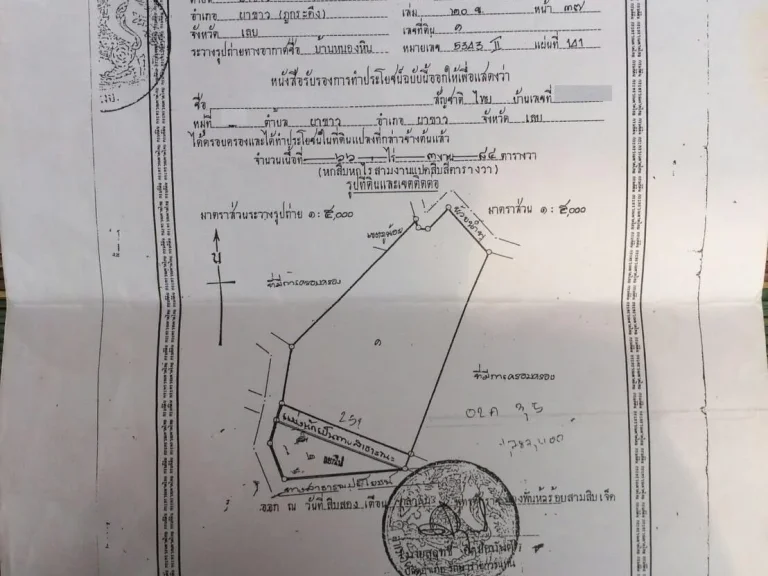 อำเภอ ผาขาว (ภูกระดึง) เล่ม ๒๐ ข. หน้า ๓๗
จังหวัด เลย เลขที่ดิน ๑
ระวางรูปถ่ายทางอากาศชื่อ บ้านหนองหิน หมายเลข 5343 II แผ่นที่ 141
หนังสือรับรองการทำประโยชน์ฉบับนี้ออกให้เพื่อแสดงว่า
ชื่อ สัญชาติ ไทย บ้านเลขที่
หมู่ที่ ตำบล ผาขาว อำเภอ ผาขาว จังหวัด เลย
ได้ครอบครองและได้ทำประโยชน์ในที่ดินแปลงที่กล่าวข้างต้นแล้ว
จำนวนเนื้อที่ ๖๖ ไร่ ๓ งาน ๘๔ ตารางวา
(หกสิบหกไร่สามงานแปดสิบสี่ตารางวา)
รูปที่ดินและเขตติดต่อ
มาตราส่วนระวางรูปถ่าย ๑ : ๕,๐๐๐ มาตราส่วน ๑ : ๕,๐๐๐
น
ที่มีการครอบครอง
๑
ที่มีการครอบครอง
251
แบ่งหักเป็นทางสาธารณะ
๒
แยกไป
ทางสาธารณประโยชน์
ออก ณ วันที่ สิบสอง เดือน